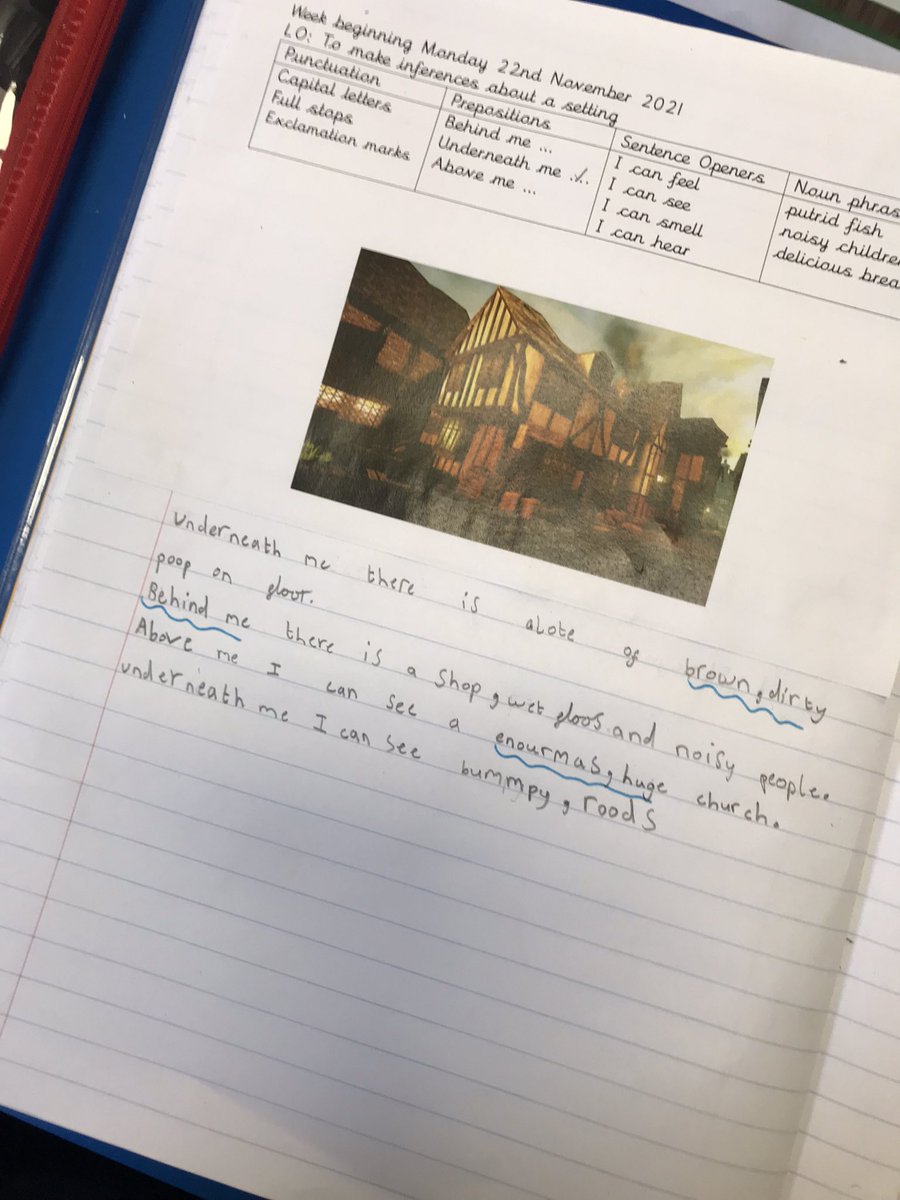 Week beginning Monday 22nd November 2021
LO: To make inferences about a setting
Punctuation
Capital letters
Full stops
Exclamation marks
Prepositions
Behind me ...
Underneath me ...
Above me ...
Sentence Openers
I can feel
I can see
I can smell
I can hear
Noun phras
putrid fish
noisy children
delicious brea
underneath me there is alote of brown, dirty
poop on floor.
Behind me there is a shop, wet floos and noisy people.
Above me I can see a enourmas, huge church.
underneath me I can see bummpy, roods